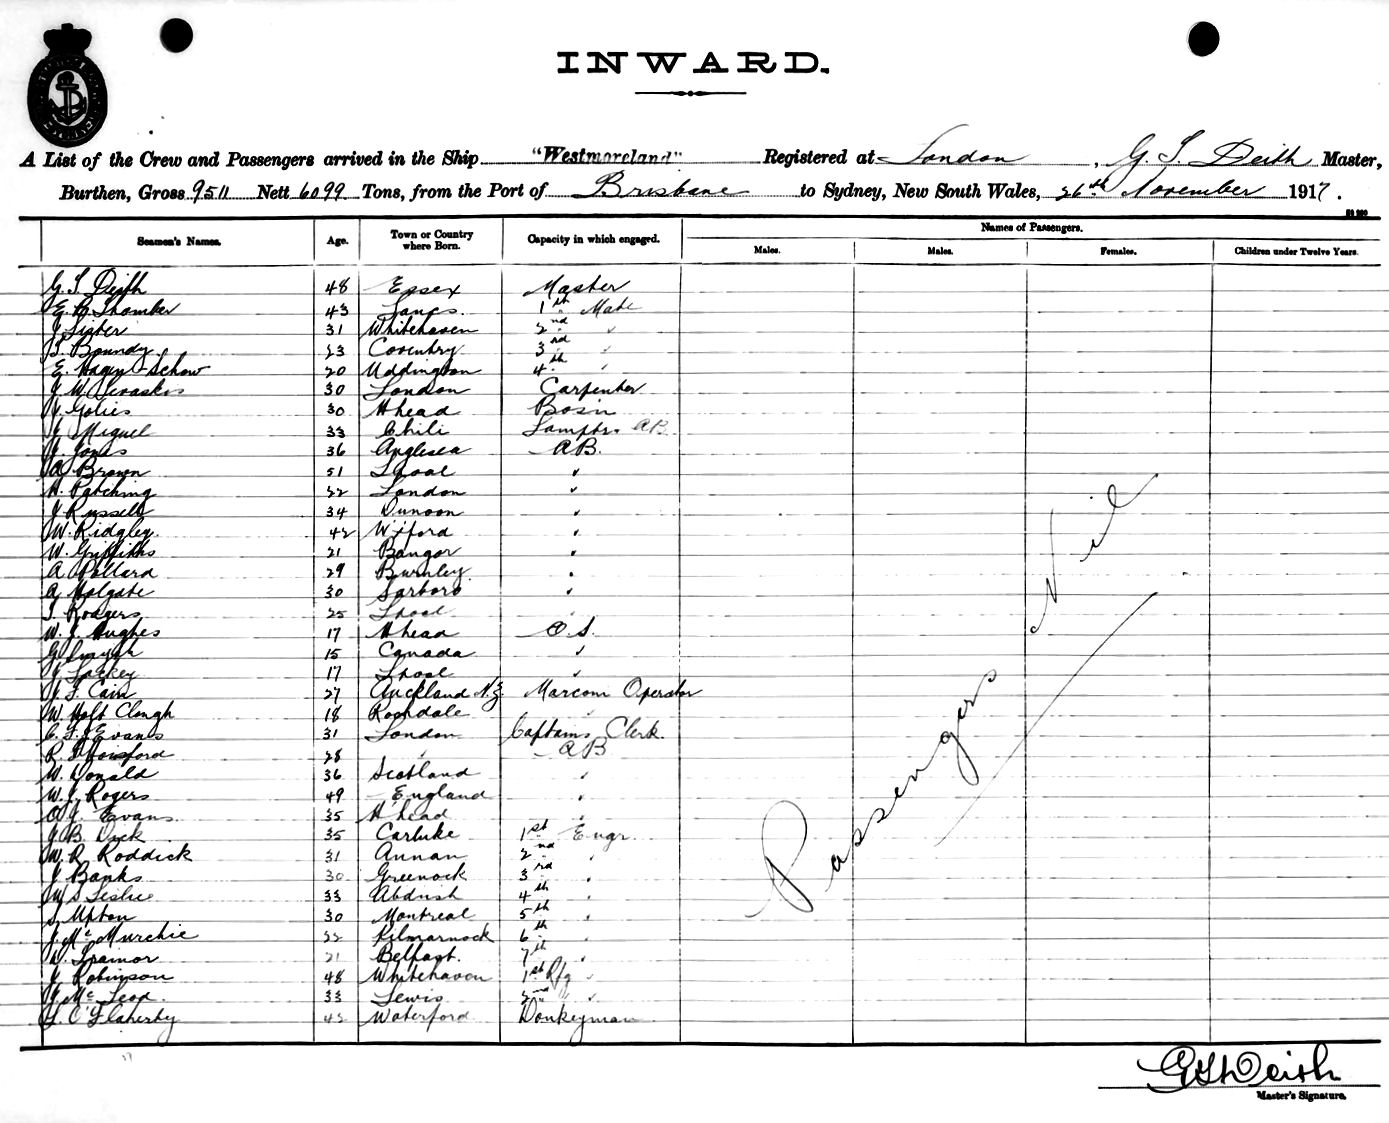 INWARD.
A List of the Crew and Passengers arrived in the Ship "Westmoreland" Registered at London, G. T. Deith Master,
Burthen, Gross 9511 Nett 6099 Tons, from the Port of Brisbane to Sydney, New South Wales, 26th November 1917.
Seamen's Names. Age. Town or Country where Born. Capacity in which engaged. Names of Passengers.
Males. Males. Females. Children under Twelve Years.
G. T. Deith 48 Essex Master
E. B. Thomber 43 Lancs. 1st Mate
J. Lister 31 Whitehaven 2nd "
Boundy 23 Coventry 3rd "
E. Hagup Schow 20 Uddington 4th "
J. W. 30 London Carpenter
J. Golies 30 Hhead Bosin
J. Miguel 33 Chili Lamptrs AB
J. Jones 36 Anglesea AB.
A. Brown 51 Lpool "
H. Patching 22 London "
J. Russell 34 Dunoon "
W. Ridgley. 42 Wxford "
W. Griffiths 21 Bangor "
A. Pollard 29 Burnley "
A. Holgate 30 Sarboro "
T. Rodgers 25 Lpool
W. J. Hughes 17 Hhead O.S.
G. Smyth 15 Canada "
J. Lackey 17 Lpool "
J. F. Cain 27 Auckland N.Z. Marconi Operator
W. Holt Clough 18 Rochdale "
C. F. Evans 31 London Captains Clerk.
R. Hoisford 28 " AB
W. Donald 36 Scotland "
W. J. Rogers 49 England "
O. J. Evans. 35 H'head "
J. B. Dick 35 Carluke 1st Engr.
W. R. Roddick 31 Annan 2nd "
J. Banks 30 Greenock 3rd "
W. S. Leslie 33 Abdnsh 4th "
S. Upton 30 Montreal 5th "
J. McMurchie 22 Kilmarnock 6th "
D. Trainor 21 Belfast. 7th "
J. Robinson 48 Whitehaven 1st Rfg "
J. McLeod. 33 Lewis 2nd " "
T. O'Flaherty 42 Waterford Donkeyman
Passengers Nil
G T Deith
Master's Signature.